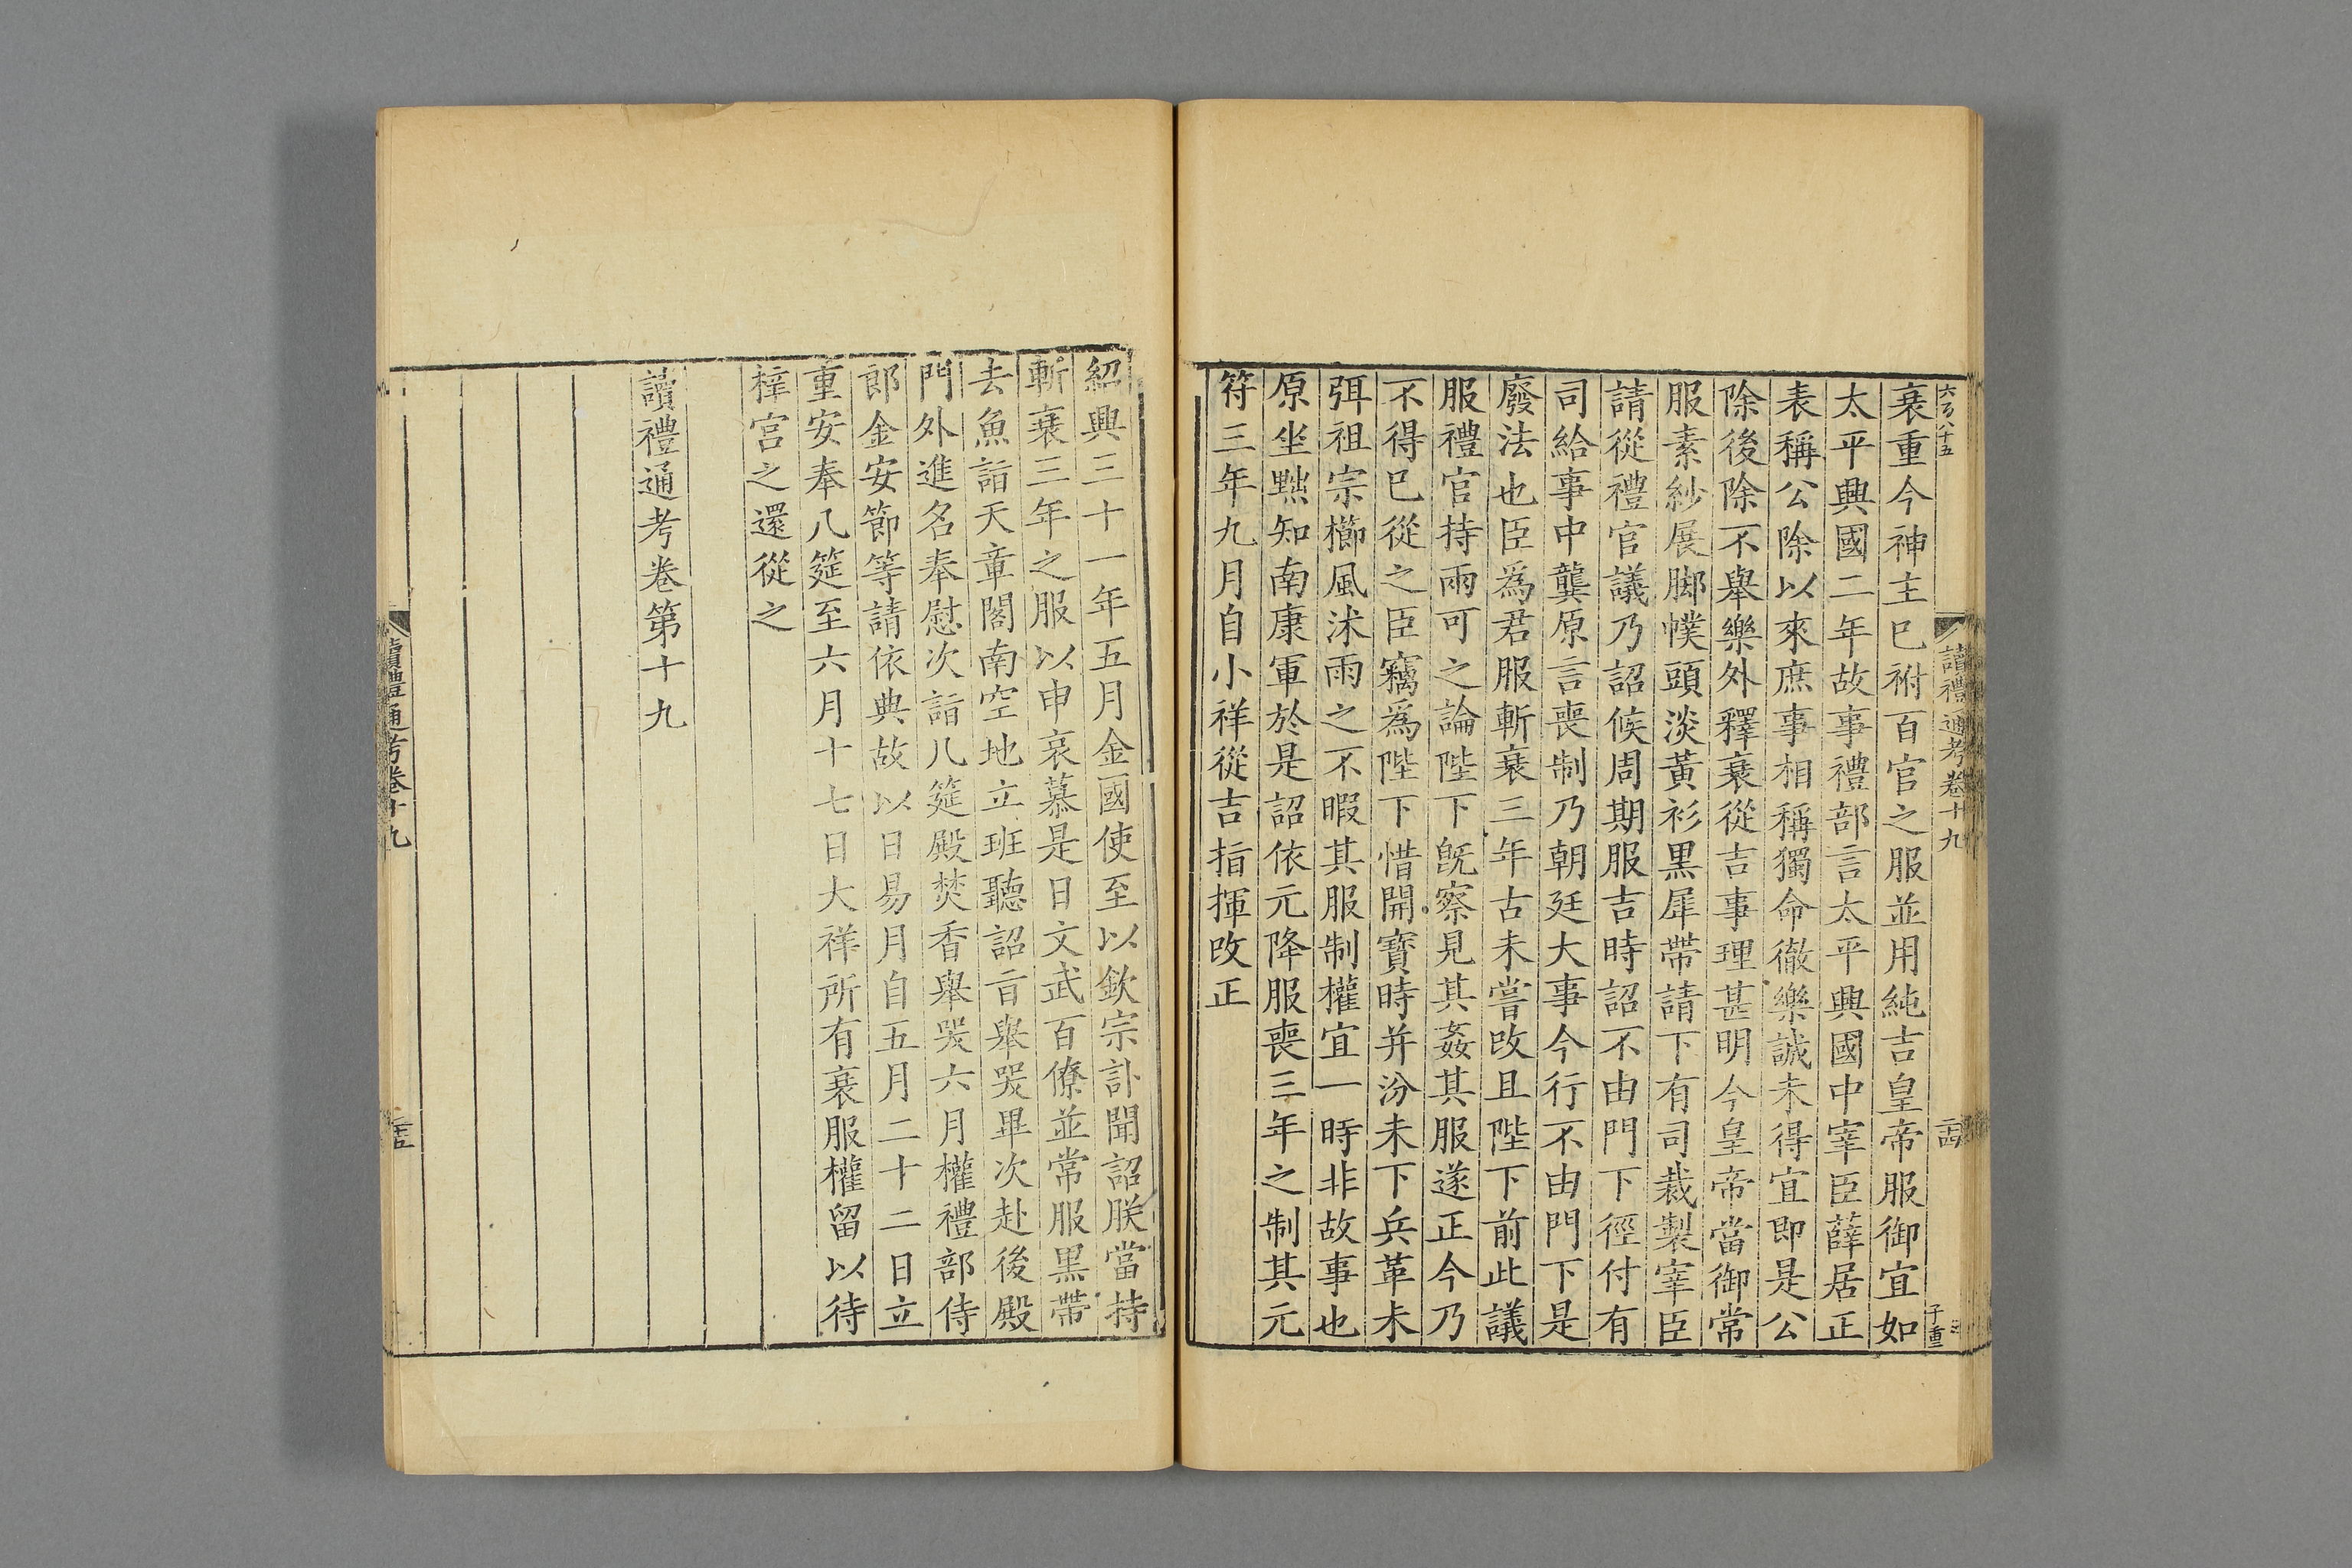 衰重今神主巳祔百官之服並用純吉皇帝服御宜如
太平興國二年故事禮部言太平興國中宰臣薛居正
表稱公除以來庶事相稱獨命徹樂誠未得宜即是公
除後除不舉樂外釋衰從吉事理甚明今皇帝當御常
服素紗展脚幞頭淡黃衫黒犀帶請下有司裁製宰臣
請從禮官議乃詔候周期服吉時詔不由門下徑付有
司給事中龔原言喪制乃朝廷大事今行不由門下是
廢法也臣爲君服斬衰三年古未嘗改且陛下前此議
服禮官持兩可之論陛下旣察見其姦其服遂正今乃
不得巳從之臣竊爲陛下惜開寶時并汾未下兵革未
弭祖宗櫛風沐雨之不暇其服制權宜一時非故事也
原坐黜知南康軍於是詔依元降服喪三年之制其元
符三年九月自小祥從吉指揮改正
紹興三十一年五月金國使至以欽宗訃聞詔朕當持
斬衰三年之服以申哀慕是日文武百僚並常服黒帶
去魚詣天章閣南空地立班聽詔旨舉哭畢次赴後殿
門外進名奉慰次詣几筵殿焚香舉哭六月權禮部侍
郎金安節等請依典故以日易月自五月二十二日立
重安奉八筵至六月十七日大祥所有衰服權留以待
梓宮之還從之
讀禮通考卷第十九
六百八十五
讀禮通考卷十九
子重
讀禮通考卷十九